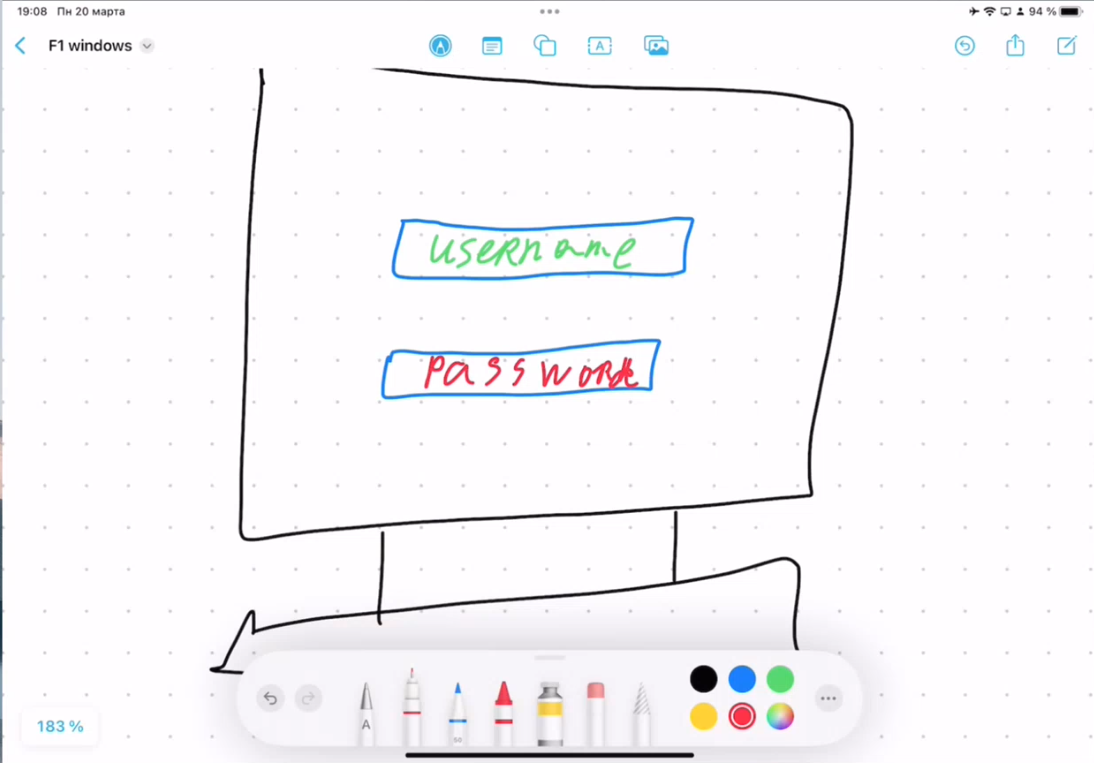 19:08 Пн 20 марта 94 %
F1 windows
A
username
password
183 %
A
50